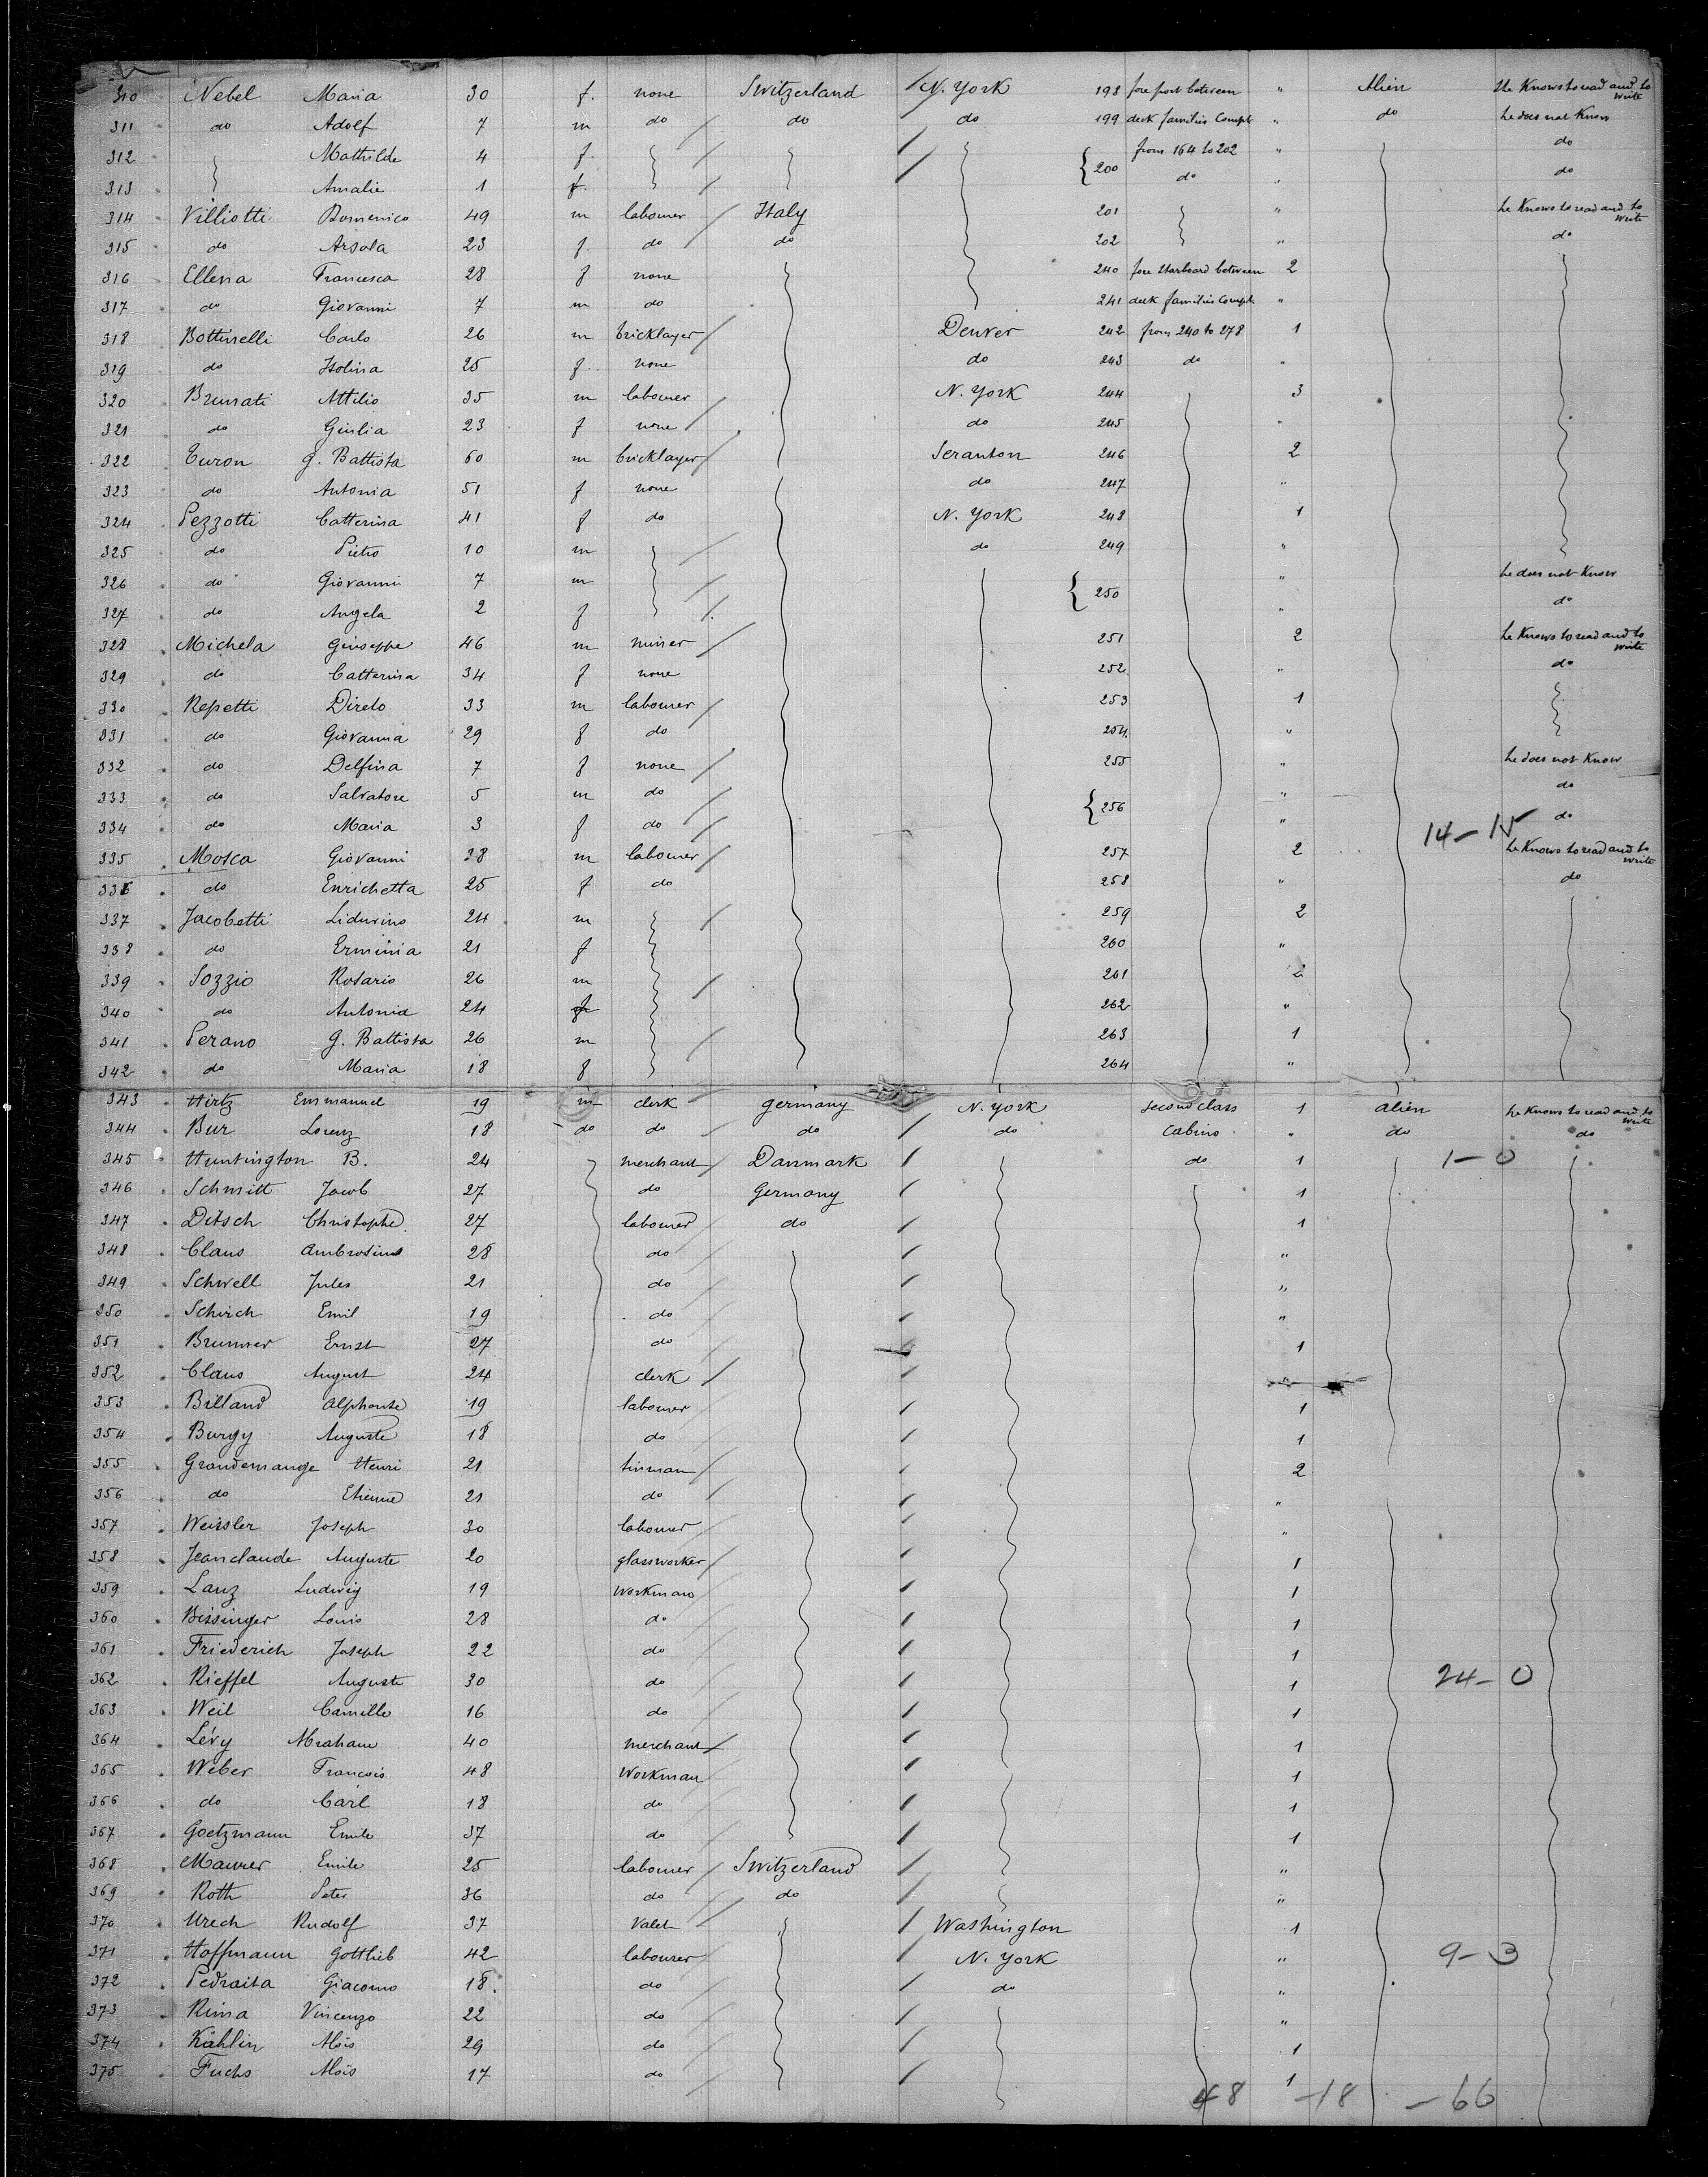 310 Nebel Maria 30 f. none Switzerland N. York 198 fore port between " Alien She Knows to read and to write
311 do Adolf 7 m do do do 199 deck families Compt " do he does not Know
312 Mathilde 4 f. { 200 from 164 to 202 " do
313 Amalie 1 f. do " do
314 Villiotti Domenico 49 m labourer Italy 201 " he Knows to read and to write
315 do Arsola 23 f. do do 202 " do
316 Ellena Francesca 28 f none 240 fore starboard between 2
317 do Giovanni 7 m do 241 deck families Compt "
318 Bottinelli Carlo 26 m bricklayer Denver 242 from 240 to 278 1
319 do Isolina 25 f. none do 243 do "
320 Brunati Attilio 35 m labourer N. York 244 3
321 do Giulia 23 f none do 245 "
322 Turon G. Battista 60 m bricklayer Scranton 246 2
323 do Antonia 51 f none do 247 "
324 Pezzotti Catterina 41 f do N. York 248 1
325 do Pietro 10 m do 249 "
326 do Giovanni 7 m { 250 " he does not Know
327 do Angela 2 f " do
328 Michela Giuseppe 46 m miner 251 2 he Knows to read and to write
329 do Catterina 34 f none 252 " do
330 Repetti Direlo 33 m labourer 253 1
331 do Giovanna 29 f do 254. "
332 do Delfina 7 f none 255 " he does not Know
333 do Salvatore 5 m do { 256 " do
334 do Maria 3 f do " do
14 – 15
335 Mosca Giovanni 28 m labourer 257 2 he Knows to read and to write
336 do Enrichetta 25 f do 258 " do
337 Jacobetti Lidurino 24 m 259 2
338 do Erminia 21 f 260 "
339 Sozzio Rosario 26 m 261 2
340 do Antonia 24 f 262 "
341 Perano G. Battista 26 m 263 1
342 do Maria 18 f 264 "
343 Hirtz Emmanuel 19 m clerk Germany N. York Second class 1 alien he Knows to read and to write
344 Bur Lorenz 18 do do do do Cabins " do do
345 Huntington B. 24 merchant Danmark do 1 1 – 0
346 Schmitt Jacob 27 do Germany 1
347 Ditsch Christophe 27 labourer do 1
348 Claus Ambrosius 28 do "
349 Schwell Jules 21 do "
350 Schirch Emil 19 do "
351 Brunner Ernst 27 do 1
352 Claus August 24 clerk
353 Billand Alphonse 19 labourer 1
354 Burgy Auguste 18 do 1
355 Grandemange Henri 21 tinman 2
356 do Etienne 21 do "
357 Weissler Joseph 30 labourer "
358 Jeanclaude Auguste 20 glassworker 1
359 Lanz Ludwig 19 Workman 1
360 Bissinger Louis 28 do 1
361 Friederich Joseph 22 do 1
362 Rieffel Auguste 30 do 1 24 – 0
363 Weil Camille 16 do 1
364 Lévy Abraham 40 merchant 1
365 Weber Francois 48 Workman 1
366 do Carl 18 do 1
367 Goetzmann Emile 37 do 1
368 Maurer Emile 25 labourer Switzerland "
369 Roth Peter 36 do do "
370 Urech Rudolf 37 Valet Washington 1
371 Hoffmann Gottlieb 42 labourer N. York " 9 – 3
372 Pedraita Giacomo 18. do do "
373 Rima Vincenzo 22 do "
374 Kählin Aloïs 29 do 1
375 Fuchs Aloïs 17 do 1
48 – 18 – 66